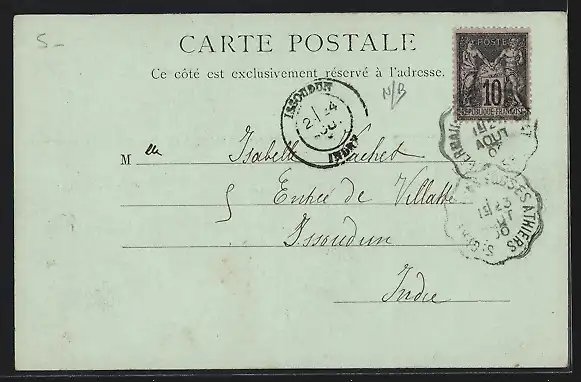 5-
CARTE POSTALE
Ce côté est exclusivement réservé à l'adresse.
N/B
POSTE
10
RÉPUBLIQUE FRANÇAISE
ISSOUDUN
24
INDRE
AOUT
Melle Isabelle Vachet
5 Entrée de Villatte
Issoudun
Indre
ATHIERS